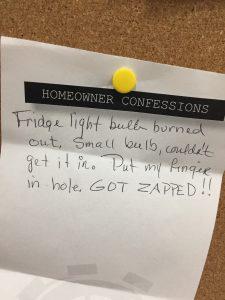 HOMEOWNER CONFESSIONS
Fridge light bulb burned
out. Small bulb, couldn't
get it in. Put my finger
in hole. GOT ZAPPED!!